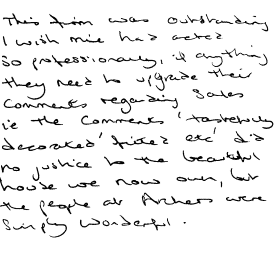 This firm was outstanding
I wish mine had acted
so professionally, if anything
they need to upgrade their
comments regarding sales
ie the comments 'tastefully
decorated' 'fitted etc' did
no justice to the beautiful
house we now own, but
the people at Archers were
simply wonderful.